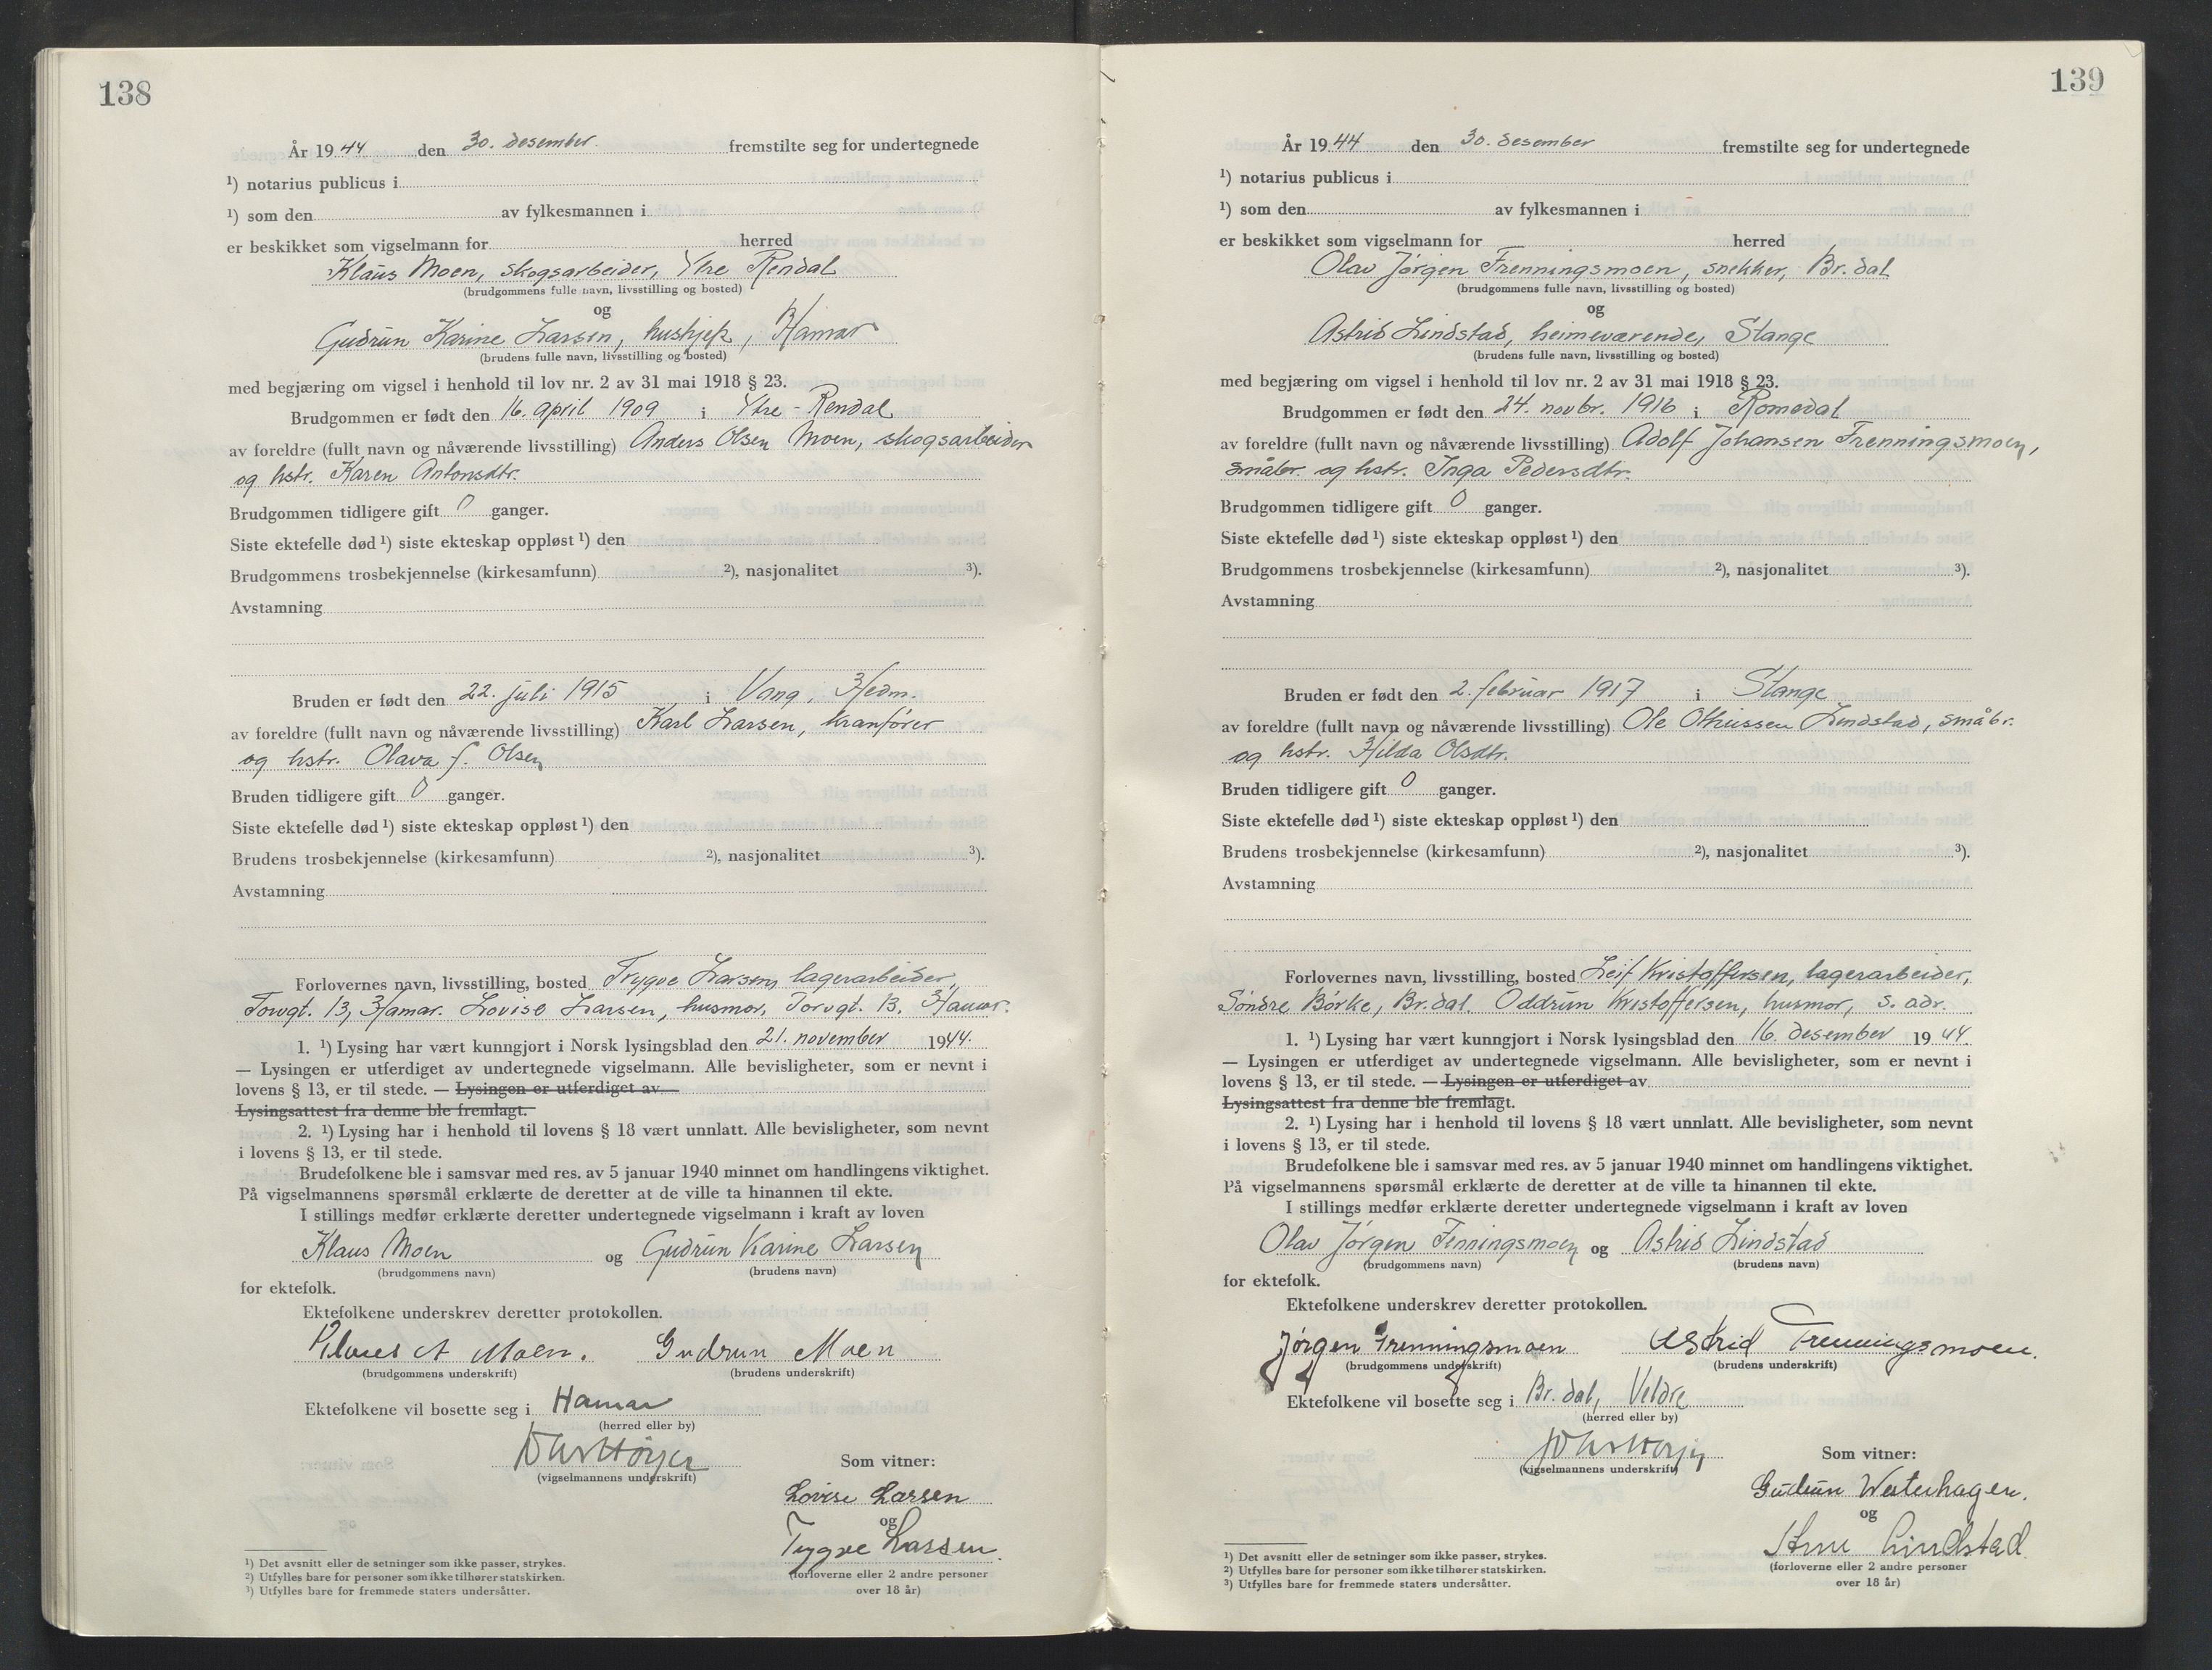 138
År 1944 den 30. desember fremstilte seg for undertegnede
¹) notarius publicus i
¹) som den av fylkesmannen i
er beskikket som vigselmann for herred
Klaus Moen, skogsarbeider, Ytre Rendal
(brudgommens fulle navn, livsstilling og bosted)
og
Gudrun Karine Larsen, hushjelp, Hamar
(brudens fulle navn, livsstilling og bosted)
med begjæring om vigsel i henhold til lov nr. 2 av 31 mai 1918 § 23.
Brudgommen er født den 16. april 1909 i Ytre-Rendal
av foreldre (fullt navn og nåværende livsstilling) Anders Olsen Moen, skogsarbeider
og hstr. Karen Antonsdtr.
Brudgommen tidligere gift 0 ganger.
Siste ektefelle død ¹) siste ekteskap oppløst ¹) den
Brudgommens trosbekjennelse (kirkesamfunn) ²), nasjonalitet ³).
Avstamning
Bruden er født den 22. juli 1915 i Vang, Hedm.
av foreldre (fullt navn og nåværende livsstilling) Karl Larsen, kranfører
og hstr. Olava f. Olsen
Bruden tidligere gift 0 ganger.
Siste ektefelle død ¹) siste ekteskap oppløst ¹) den
Brudens trosbekjennelse (kirkesamfunn) ²), nasjonalitet ³).
Avstamning
Forlovernes navn, livsstilling, bosted Trygve Larsen, lagerarbeider,
Torvgt. 13, Hamar. Lovise Larsen, husmor, Torvgt. 13, Hamar.
1. ¹) Lysing har vært kunngjort i Norsk lysingsblad den 21. november 1944.
— Lysingen er utferdiget av undertegnede vigselmann. Alle bevisligheter, som er nevnt i
lovens § 13, er til stede. — Lysingen er utferdiget av
Lysingsattest fra denne ble fremlagt.
2. ¹) Lysing har i henhold til lovens § 18 vært unnlatt. Alle bevisligheter, som nevnt
i lovens § 13, er til stede.
Brudefolkene ble i samsvar med res. av 5 januar 1940 minnet om handlingens viktighet.
På vigselmannens spørsmål erklærte de deretter at de ville ta hinannen til ekte.
I stillings medfør erklærte deretter undertegnede vigselmann i kraft av loven
Klaus Moen og Gudrun Karine Larsen
(brudgommens navn) (brudens navn)
for ektefolk.
Ektefolkene underskrev deretter protokollen.
Klaus A Moen. Gudrun Moen
(brudgommens underskrift) (brudens underskrift)
Ektefolkene vil bosette seg i Hamar
(herred eller by)
(vigselmannens underskrift)
Som vitner:
Lovise Larsen
og
Tygve Larsen.
(forloverne eller 2 andre personer
over 18 år)
¹) Det avsnitt eller de setninger som ikke passer, strykes.
²) Utfylles bare for personer som ikke tilhører statskirken.
³) Utfylles bare for fremmede staters undersåtter.
139
År 1944 den 30. desember fremstilte seg for undertegnede
¹) notarius publicus i
¹) som den av fylkesmannen i
er beskikket som vigselmann for herred
Olav Jørgen Frenningsmoen, snekker, Br.dal
(brudgommens fulle navn, livsstilling og bosted)
og
Astrid Lindstad, heimeværende, Stange
(brudens fulle navn, livsstilling og bosted)
med begjæring om vigsel i henhold til lov nr. 2 av 31 mai 1918 § 23.
Brudgommen er født den 24. novbr. 1916 i Romedal
av foreldre (fullt navn og nåværende livsstilling) Adolf Johansen Frenningsmoen,
småbr. og hstr. Inga Pedersdtr.
Brudgommen tidligere gift 0 ganger.
Siste ektefelle død ¹) siste ekteskap oppløst ¹) den
Brudgommens trosbekjennelse (kirkesamfunn) ²), nasjonalitet ³).
Avstamning
Bruden er født den 2. februar 1917 i Stange
av foreldre (fullt navn og nåværende livsstilling) Ole Othiussen Lindstad, småbr.
og hstr. Hilda Olsdtr.
Bruden tidligere gift 0 ganger.
Siste ektefelle død ¹) siste ekteskap oppløst ¹) den
Brudens trosbekjennelse (kirkesamfunn) ²), nasjonalitet ³).
Avstamning
Forlovernes navn, livsstilling, bosted Leif Kristoffersen, lagerarbeider,
Søndre Børke, Br.dal. Oddrun Kristoffersen, husmor, s. adr.
1. ¹) Lysing har vært kunngjort i Norsk lysingsblad den 16. desember 1944.
— Lysingen er utferdiget av undertegnede vigselmann. Alle bevisligheter, som er nevnt i
lovens § 13, er til stede. — Lysingen er utferdiget av
Lysingsattest fra denne ble fremlagt.
2. ¹) Lysing har i henhold til lovens § 18 vært unnlatt. Alle bevisligheter, som nevnt
i lovens § 13, er til stede.
Brudefolkene ble i samsvar med res. av 5 januar 1940 minnet om handlingens viktighet.
På vigselmannens spørsmål erklærte de deretter at de ville ta hinannen til ekte.
I stillings medfør erklærte deretter undertegnede vigselmann i kraft av loven
Olav Jørgen Fenningsmoen og Astrid Lindstad
(brudgommens navn) (brudens navn)
for ektefolk.
Ektefolkene underskrev deretter protokollen.
Jørgen Frenningsmoen Astrid Frenningsmoen.
(brudgommens underskrift) (brudens underskrift)
Ektefolkene vil bosette seg i Br.dal, Veldre
(herred eller by)
(vigselmannens underskrift)
Som vitner:
Gudrun Westerhagen.
og
Arne Lindstad.
(forloverne eller 2 andre personer
over 18 år)
¹) Det avsnitt eller de setninger som ikke passer, strykes.
²) Utfylles bare for personer som ikke tilhører statskirken.
³) Utfylles bare for fremmede staters undersåtter.